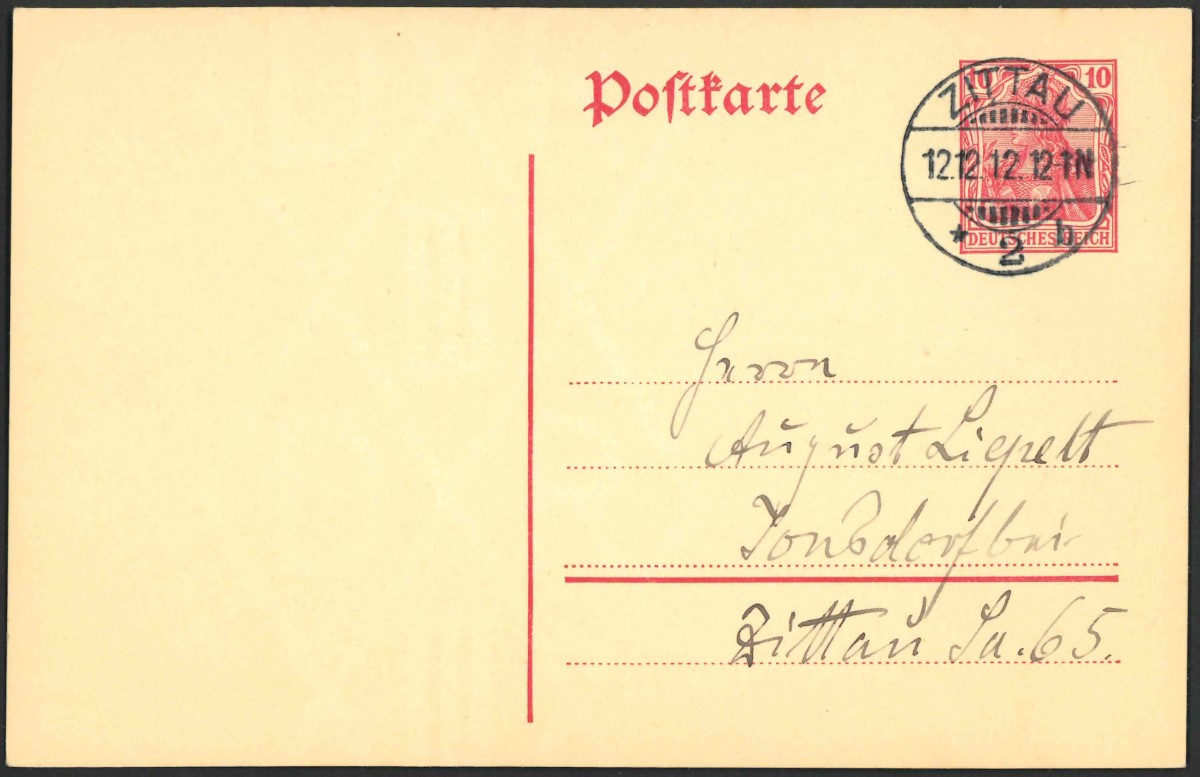 Postkarte
10 10
ZITTAU
12.12.12.12-1N
* 2 b
DEUTSCHES REICH
Herrn
August Liepelt
Jonsdorf bei
Zittau Sa. 65.